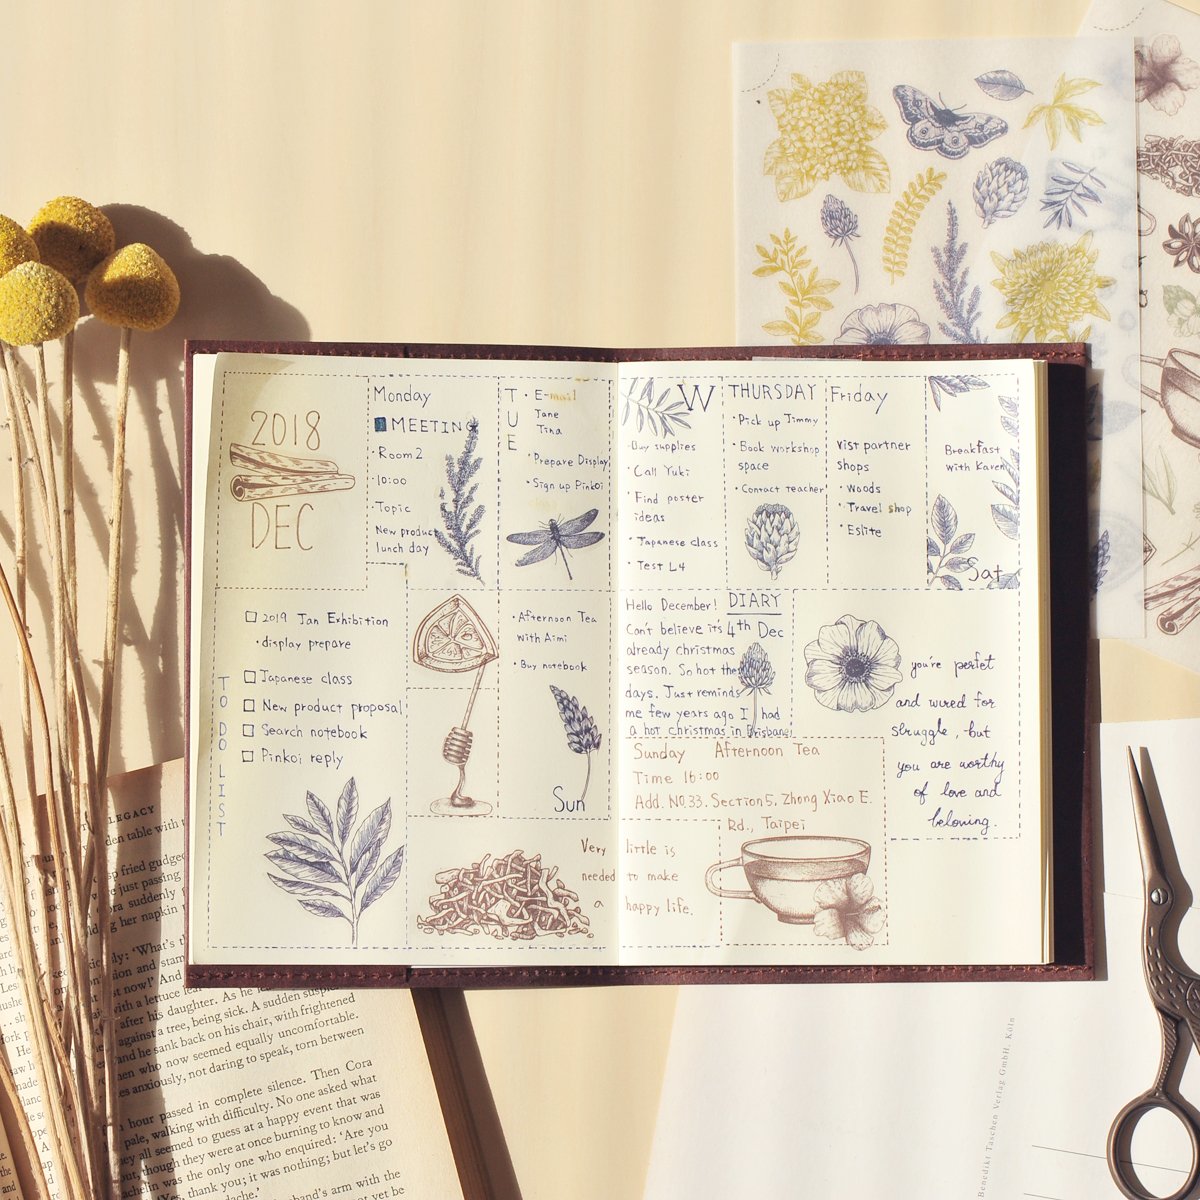 2018
DEC
Monday
MEETING
· Room 2
· 10:00
· Topic
New product
lunch day
TUE
· E-mail
Jane
Tina
· Prepare Display
· Sign up Pinkoi
W
· Buy supplies
· Call Yuki
· Find poster
ideas
· Japanese class
· Test L4
THURSDAY
· Pick up Jimmy
· Book workshop
space
· Contact teacher
Friday
Visit partner
shops
· Woods
· Travel shop
· Eslite
Breakfast
with Karen
Sat
TO DO LIST
2019 Jan Exhibition
· display prepare
Japanese class
New product proposal
Search notebook
Pinkoi reply
· Afternoon Tea
with Aimi
· Buy notebook
Sun
Hello December!
DIARY
4th Dec
Can't believe it's
already christmas
season. So hot these
days. Just reminds
me few years ago I had
a hot christmas in Brisbane!
you're perfet
and wired for
struggle, but
you are worthy
of love and
beloving.
Sunday Afternoon Tea
Time 16:00
Add. NO.33. Section5. Zhong Xiao E.
Rd., Taipei
Very little is
needed to make
a happy life.
LEGACY
den table with
sp fried
suddenly
her napkin
'What's
and
with a lettuce
after his daughter. As he
against a tree, being sick. A sudden
and he sank back on his chair, with frightened
who now seemed equally uncomfortable.
anxiously, not daring to speak, torn between
hour passed in complete silence. Then Cora
pale, walking with difficulty. No one asked what
all seemed to guess at a happy event that was
though they were at once burning to know and
was the only one who enquired: 'Are you
'Yes, thank you; it was nothing; but let's go
husband's arm with the
not yet be
Benedikt Taschen Verlag GmbH, Köln